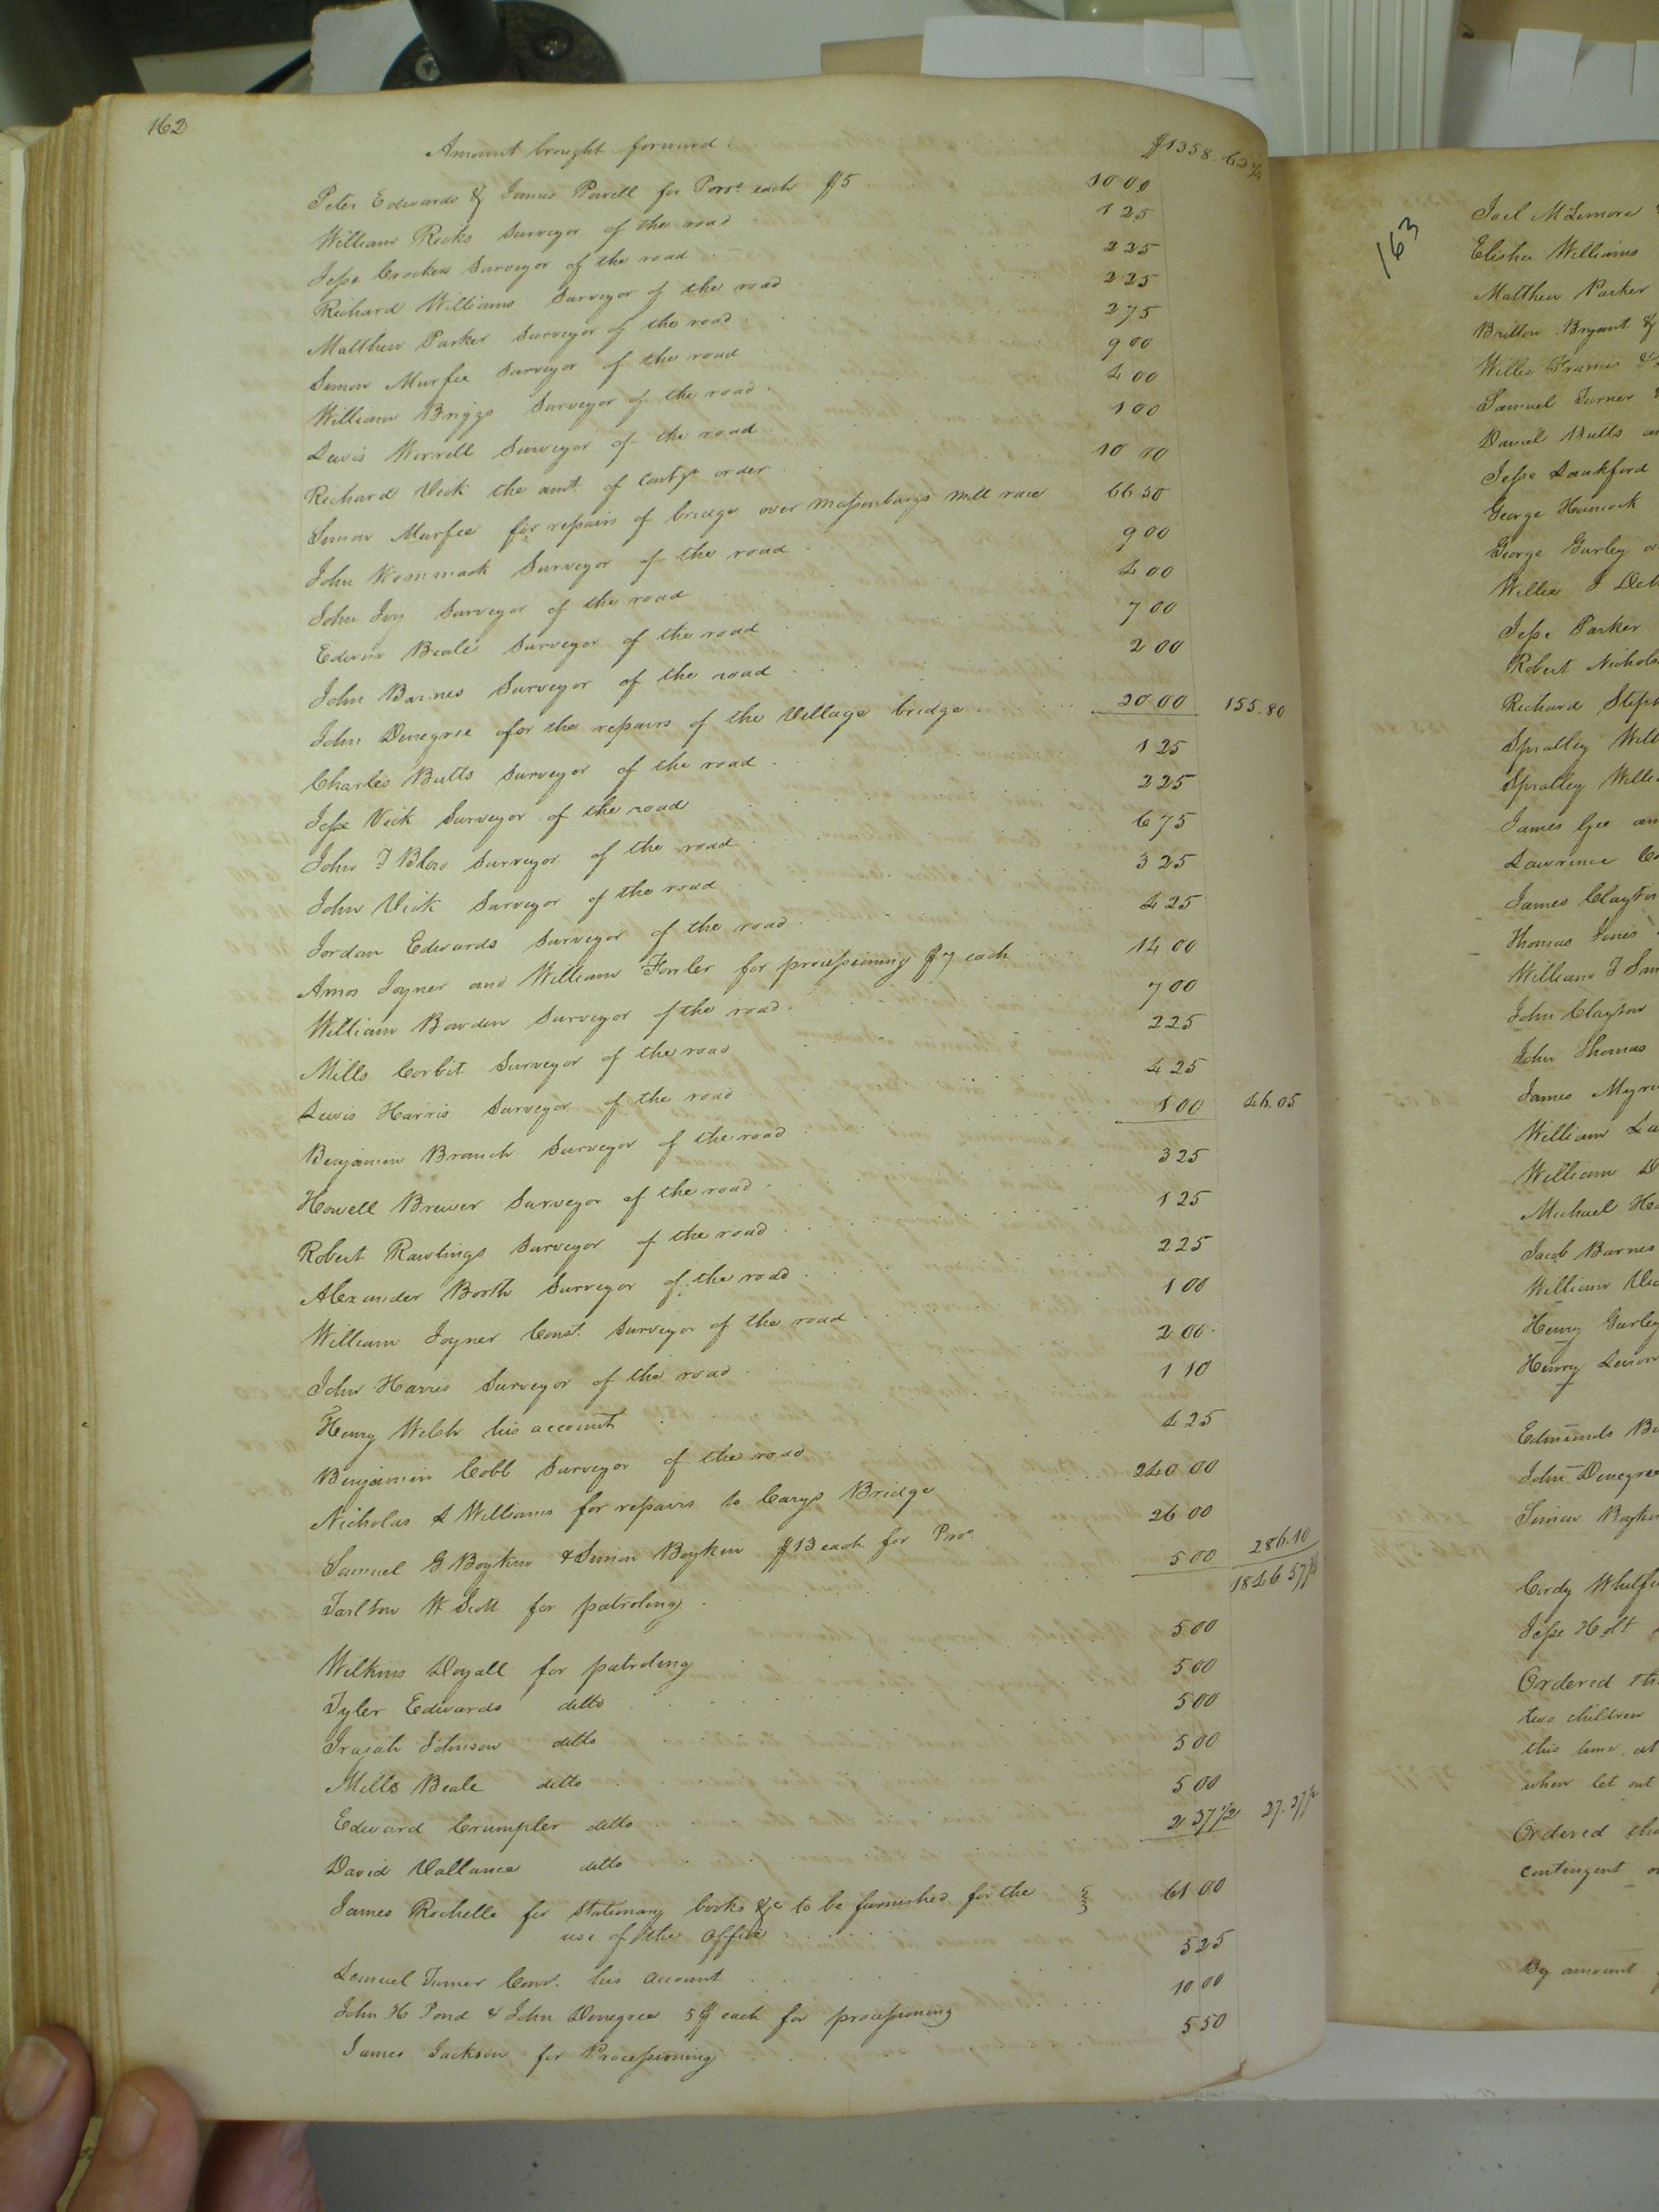 162
Amount brought forward $1358.62¾
Peter Edwards & James Powell for Pros. each $5 10 00
William Ricks Surveyor of the road 1 25
Jesse Crocker Surveyor of the road 2 25
Richard Williams Surveyor of the road 2 25
Matthew Parker Surveyor of the road 2 75
Simon Murfee Surveyor of the road 9 00
William Briggs Surveyor of the road 4 00
Lewis Worrell Surveyor of the road 1 00
Richard Vick the amt. of order 10 00
Simon Murfee for repairs of bridge over Massenburgs mill race 66 50
John Wommack Surveyor of the road 9 00
John Ivy Surveyor of the road 4 00
Edwin Beale Surveyor of the road 7 00
John Barnes Surveyor of the road 2 00
John Denegree for the repairs of the Village bridge 20 00 155.80
Charles Butts Surveyor of the road 1 25
Jesse Vick Surveyor of the road 2 25
John T Blow Surveyor of the road 6 75
John Vick Surveyor of the road 3 25
Jordan Edwards Surveyor of the road 4 25
Amos Joyner and William Fowler for processioning $7 each 14 00
William Bowden Surveyor of the road 7 00
Mills Corbit Surveyor of the road 2 25
Lewis Harris Surveyor of the road 4 25
Benjamin Branch Surveyor of the road 1 00 46.05
Howell Brewer Surveyor of the road 3 25
Robert Rawlings Surveyor of the road 1 25
Alexander Booth Surveyor of the road 2 25
William Joyner Const. Surveyor of the road 1 00
John Harris Surveyor of the road 2 00
Henry Welsh his account 1 10
Benjamin Cobb Surveyor of the road 4 25
Nicholas L Williams for repairs to Carys Bridge 240 00
Samuel G Boykin & Simon Boykin $13 each for Pros. 26 00
Tarlton W Scott for patroling 5 00 286.10
1846.57¾
Wilkins Doyall for patroling 5 00
Tyler Edwards ditto 5 00
Irajah Johnson ditto 5 00
Mills Beale ditto 5 00
Edward Crumpler ditto 5 00
David Vallance ditto 2 37½ 27.37½
James Rochelle for Stationary books &c to be furnished for the 61 00
use of the Office
Lemuel Turner Const. his account 5 25
John H Pond & John Denegree 5$ each for processioning 10 00
James Jackson for Processioning 5 50
163
Joel McLemore
Elisha Williams
Matthew Parker
Britton Bryant &
Willie Francis &
Samuel Turner
Daniel Butts
Jesse Lankford
George Hancock
George Gurley
Willie J
Jesse Parker
Robert
Richard
Spratley
Spratley
James Gee
Lawrence
James Clayton
Thomas Jones
William T
John Clayton
John Thomas
James
William
William
Michael
Jacob Barnes
William
Henry Gurley
Henry
Edmunds
John Denegree
Simon
Cordy
Jesse Holt
Ordered
two children
this time
when let out
Ordered
contingent
By amount